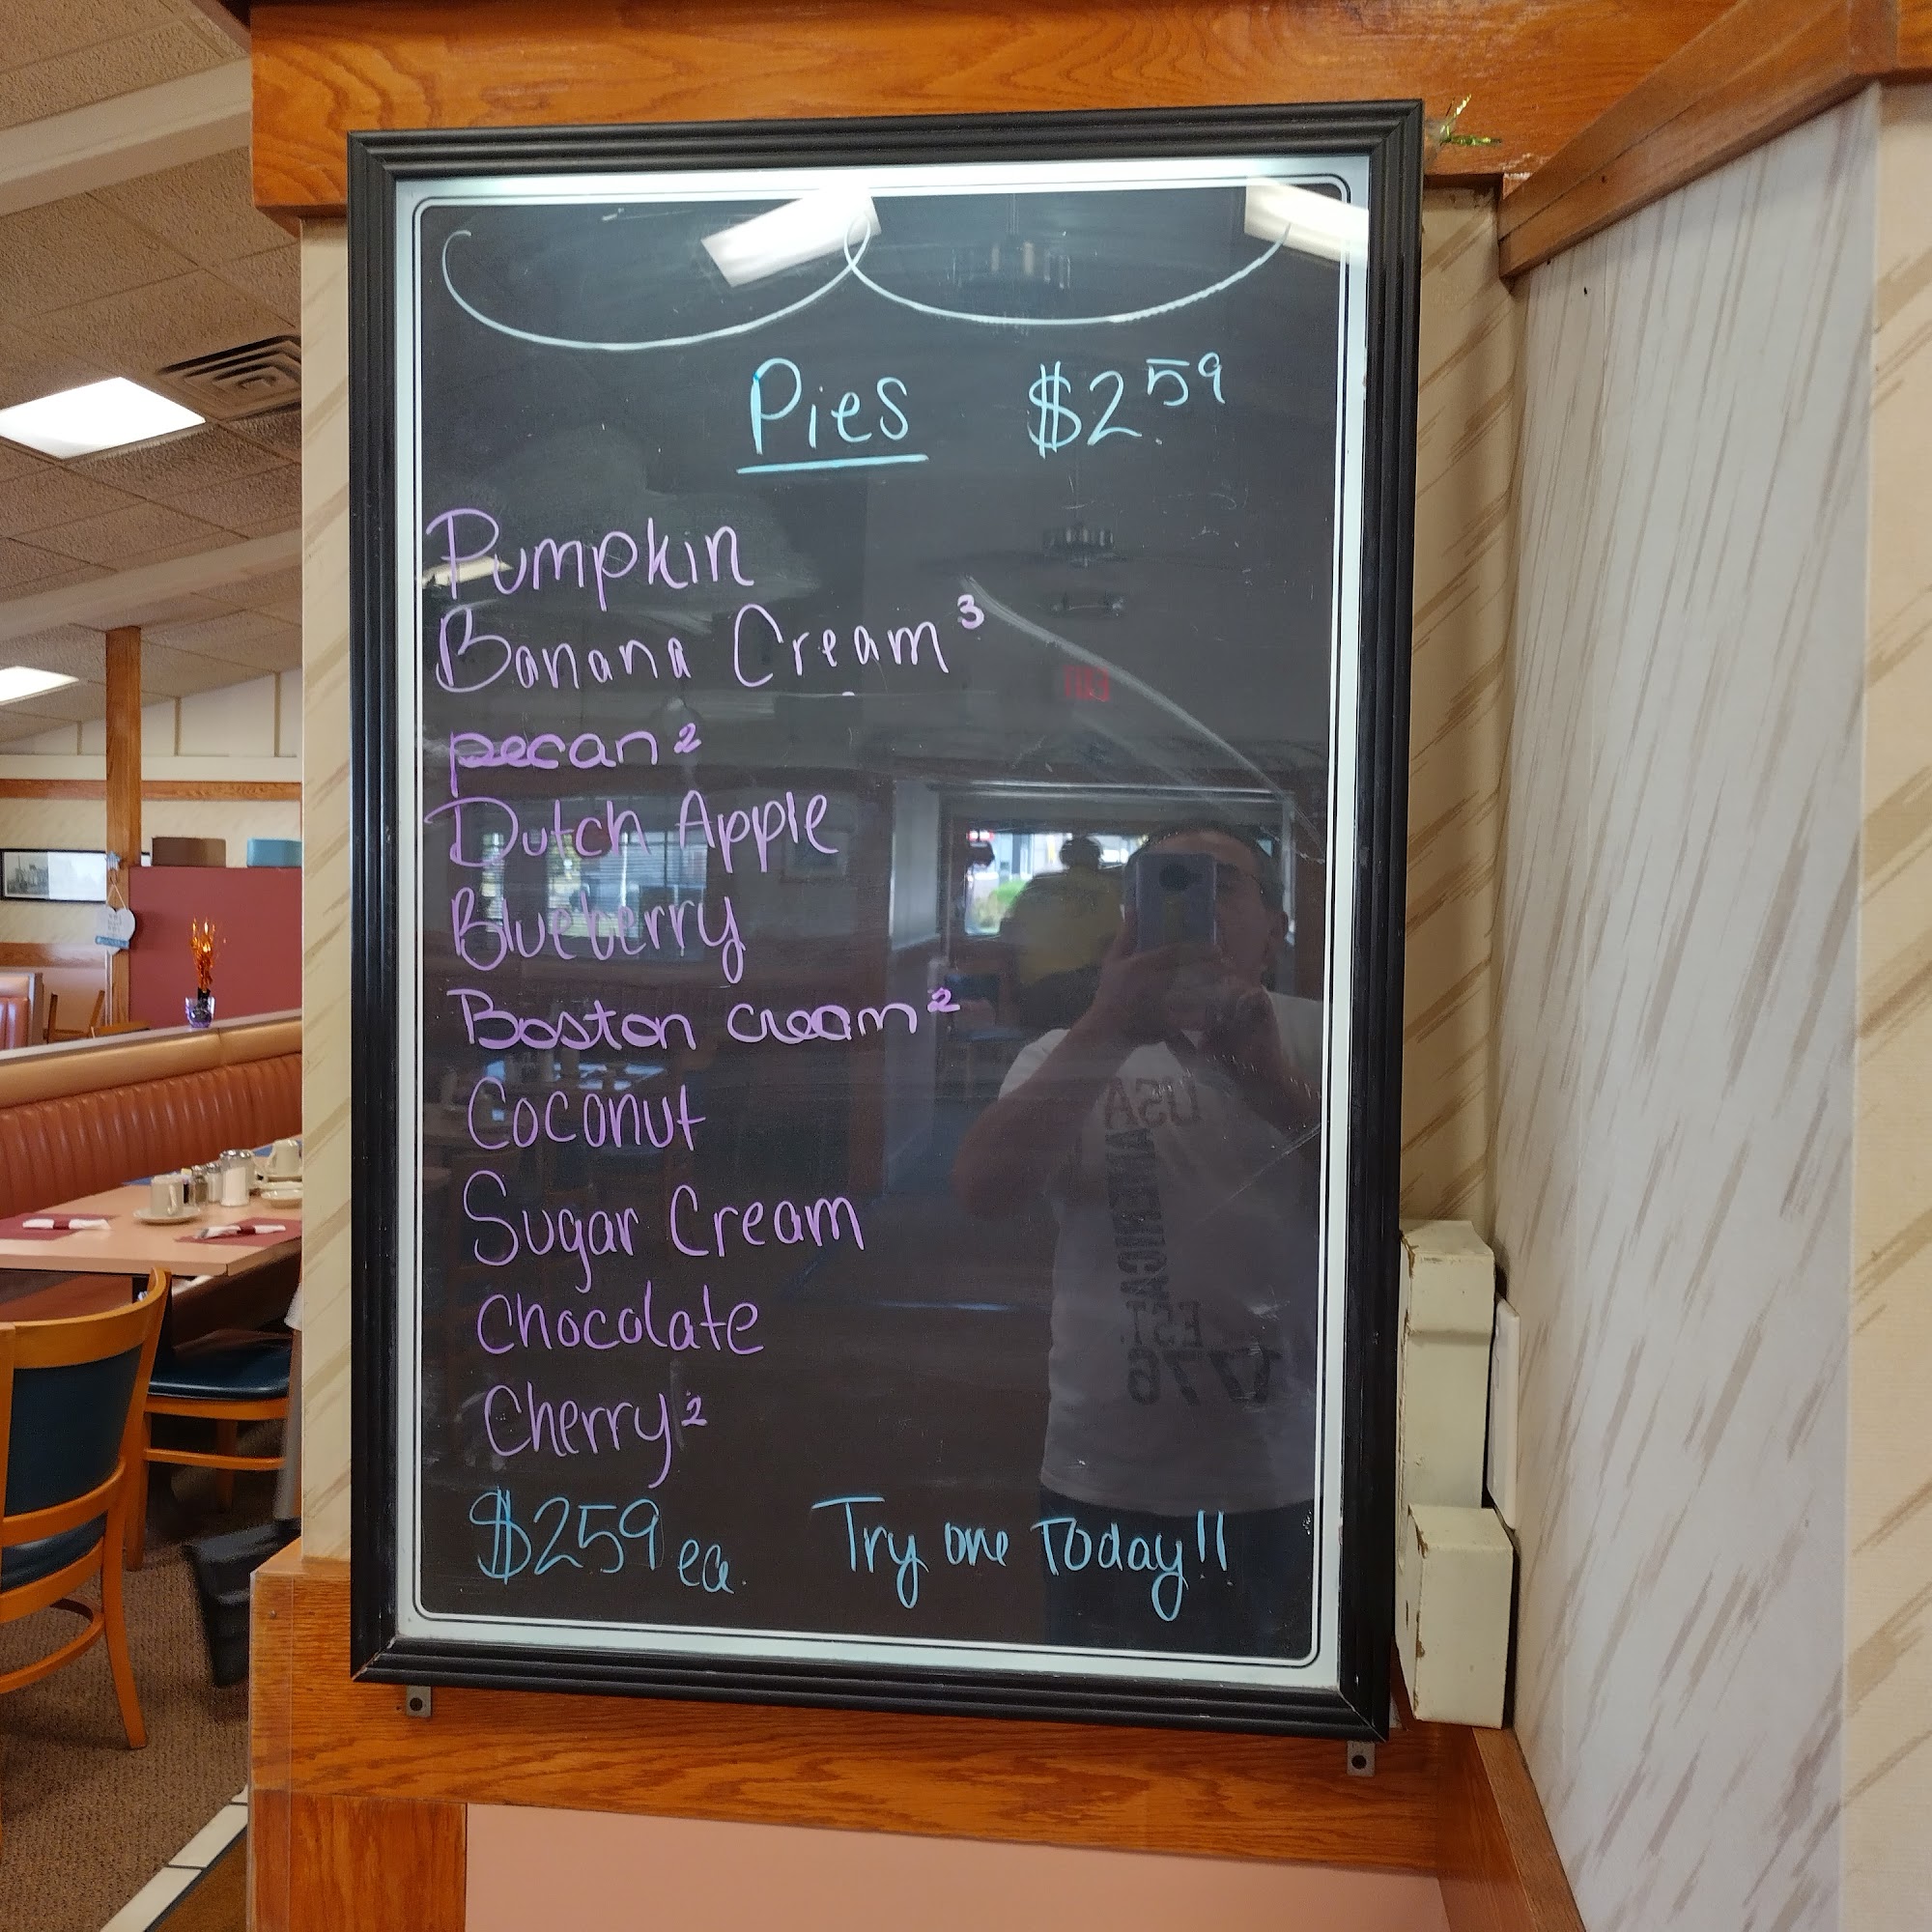 Pies $2 59
Pumpkin
Banana Cream 3
pecan 2
Dutch Apple
Blueberry
Boston cream 2
Coconut
Sugar Cream
Chocolate
Cherry 2
$259 ea. Try one Today!!
EXIT
USA
AMERICA
EST.
1776